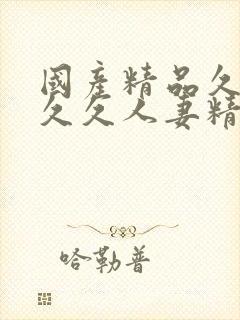 國產精品久
久久人妻精
哈勒普